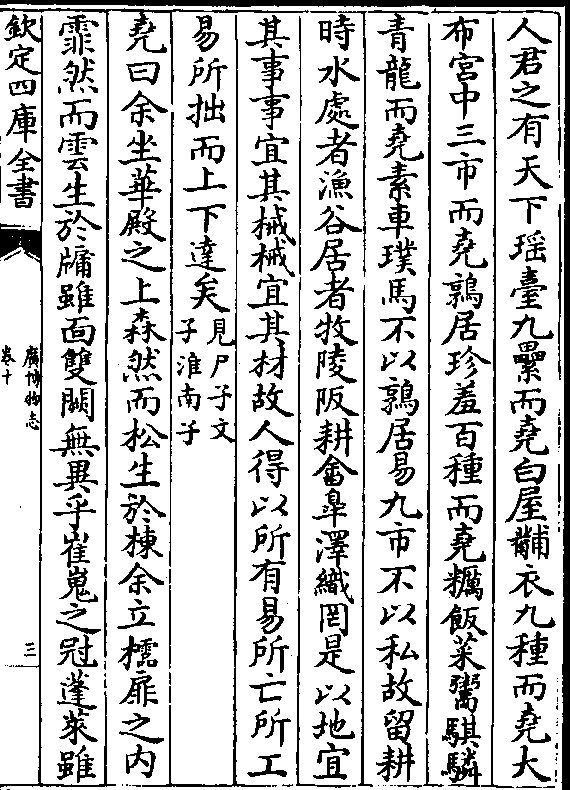 人君之有天下瑶臺九纍而堯白屋黼衣九種而堯大
布宮中三市而堯鶉居珍羞百種而堯糲飯菜鬻騏驎
青龍而堯素車璞馬不以鶉居易九市不以私故留耕
時水處者漁谷居者牧陵阪耕畬臯澤織罔是以地宜
其事事宜其械械宜其材故人得以所有易所亡所工
易所拙而上下達矣見尸子文子淮南子
堯曰余坐華殿之上森然而松生於棟余立櫺扉之内
霏然而雲生於牖雖面雙闕無異乎崔嵬之冠蓬萊雖
欽定四庫全書
廣博物志
卷十
三